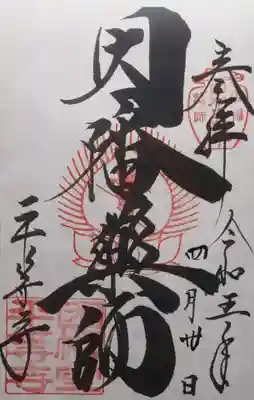 奉拝
令和五年
四月廿日
因幡薬師
平等寺
因幡堂
平等寺